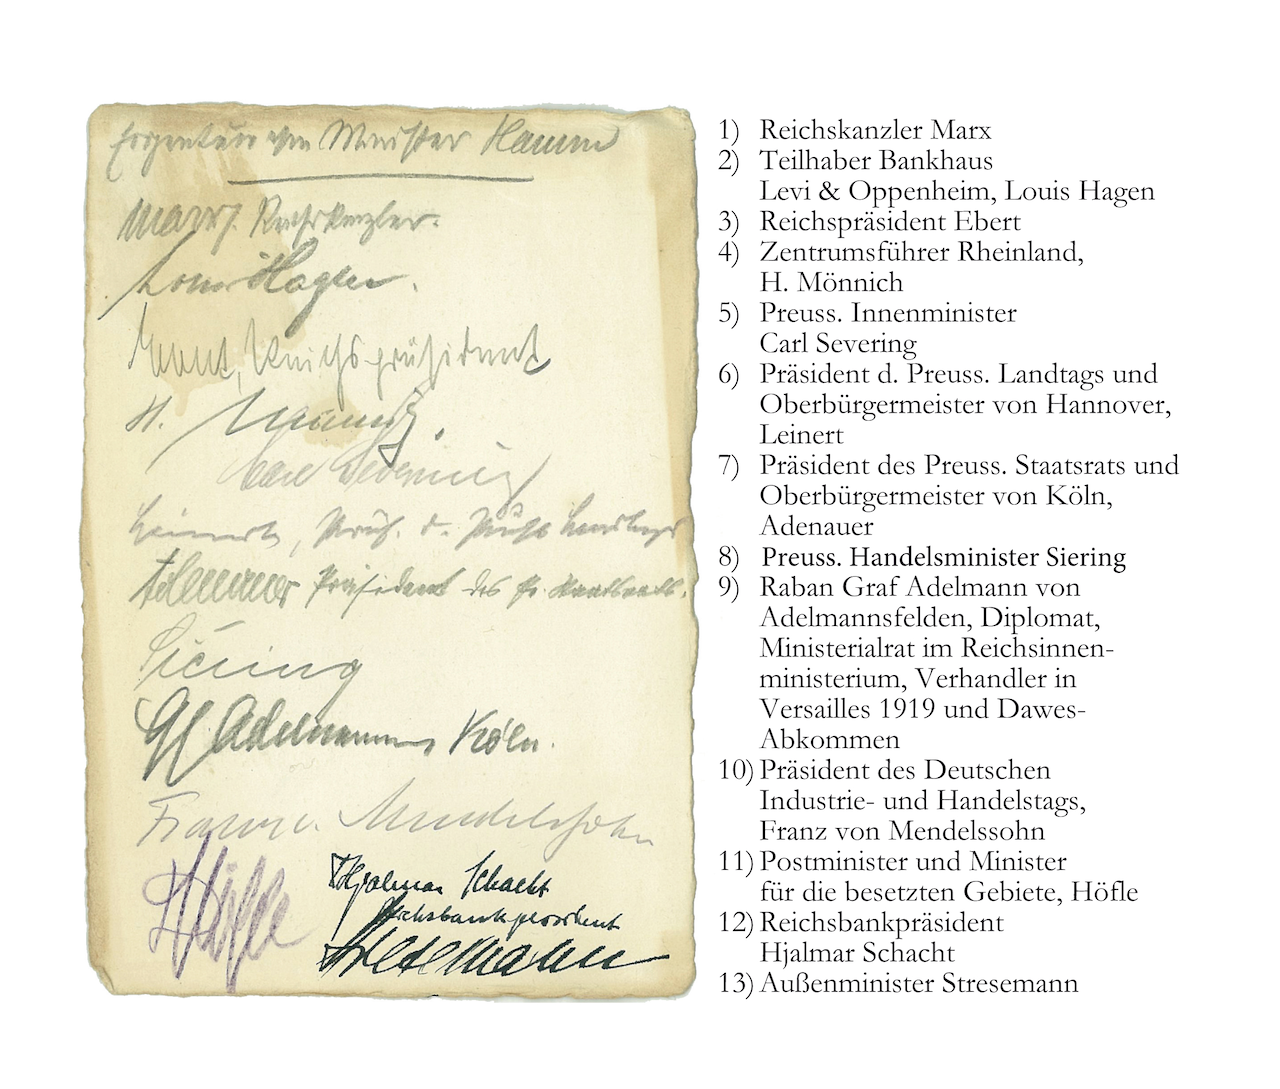 Eigentum von Minister Hamm
Marx, Reichskanzler.
Louis Hagen.
Ebert, Reichspräsident
H.
Carl Severing
Leinert, Präs. d. Preuß. Landtags
Adenauer Präsident des Pr. Staatsrats.
Siering
Gf Adelmann Köln.
Franz v. Mendelssohn
Höfle
Hjalmar Schacht
Reichsbankpräsident
Stresemann
1) Reichskanzler Marx
2) Teilhaber Bankhaus
Levi & Oppenheim, Louis Hagen
3) Reichspräsident Ebert
4) Zentrumsführer Rheinland,
H. Mönnich
5) Preuss. Innenminister
Carl Severing
6) Präsident d. Preuss. Landtags und
Oberbürgermeister von Hannover,
Leinert
7) Präsident des Preuss. Staatsrats und
Oberbürgermeister von Köln,
Adenauer
8) Preuss. Handelsminister Siering
9) Raban Graf Adelmann von
Adelmannsfelden, Diplomat,
Ministerialrat im Reichsinnen-
ministerium, Verhandler in
Versailles 1919 und Dawes-
Abkommen
10) Präsident des Deutschen
Industrie- und Handelstags,
Franz von Mendelssohn
11) Postminister und Minister
für die besetzten Gebiete, Höfle
12) Reichsbankpräsident
Hjalmar Schacht
13) Außenminister Stresemann